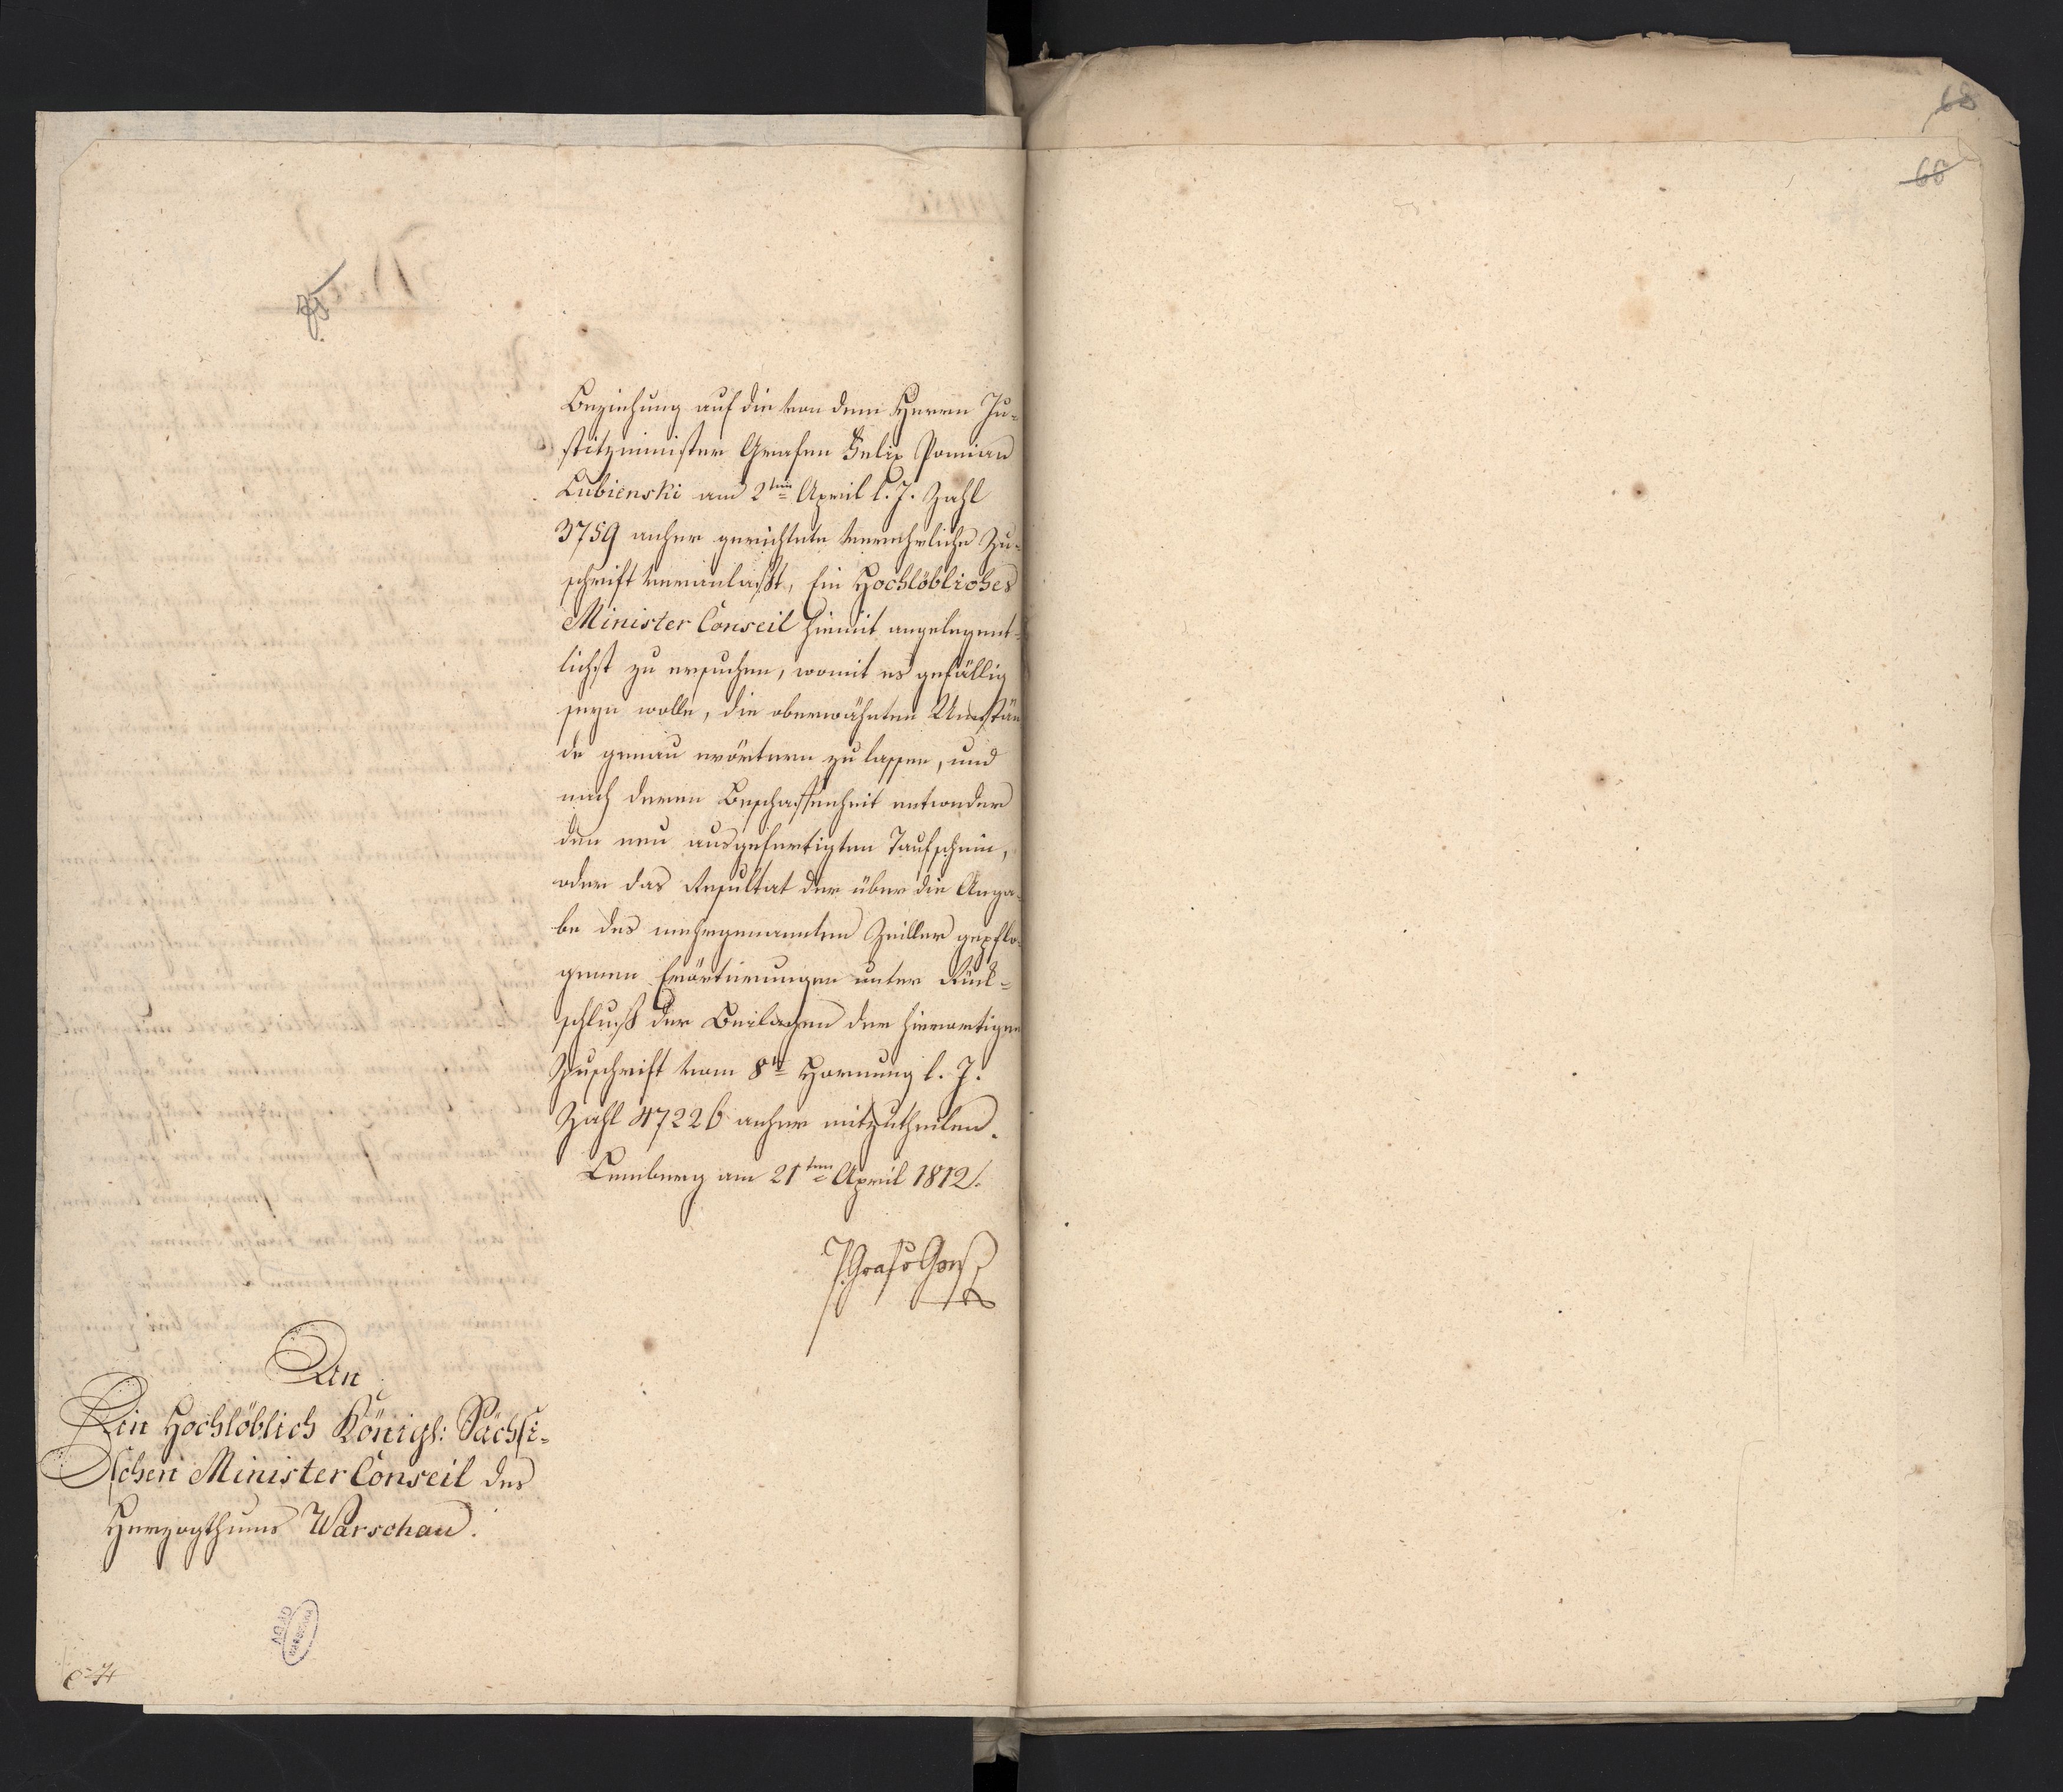 Beziehung auf die von dem Herrn Ju-
stitzminister Grafen Felix Pomian
Lubienski am 2ten April l. J. Zahl
3759 anher gerichtete verehrliche Zu-
schrift veranlaßt, Ein Hochlöbliches
Minister Conseil hiemit angelegent-
lichst zu ersuchen, womit es gefällig
seyn wolle, die oberwähnten Umstän
de genau erörtern zu lassen, und
nach deren Beschaffenheit entweder
den neu ausgefertigten Taufschein,
oder das Resultat der über die Anga-
be des mehrgenannten Zeiller gepflo-
genen Erörterungen unter Rück-
schluß der Beilagen der hierortigen
Zuschrift vom 8t Hornung l. J.
Zahl 47226 anher mitzutheilen.
Lemberg am 21ten April 1812.
P. Graf v Goeß
An
Ein Hochlöblich Königl: Sächsi-
schen Minister Conseil des
Herzogthums Warschau.
68
66